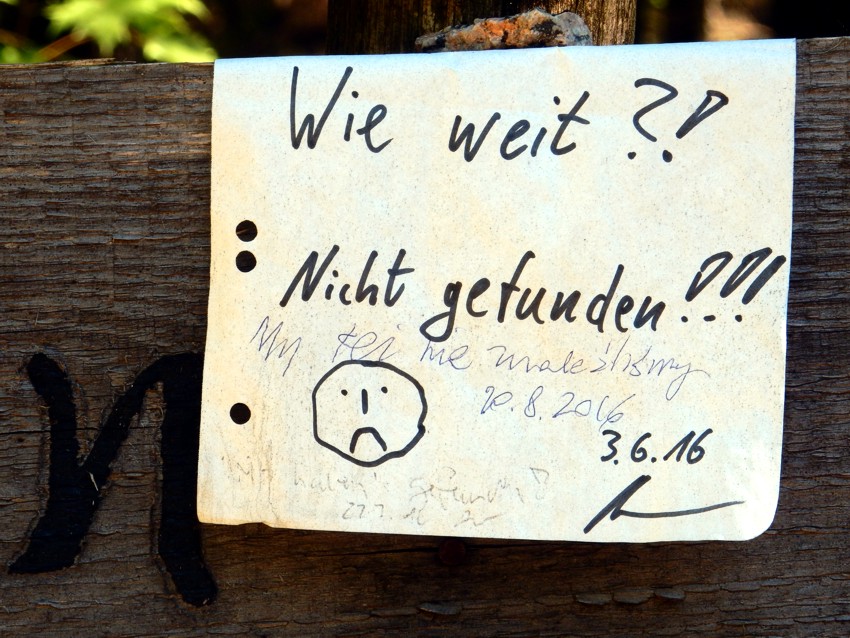 Wie weit ?!
Nicht gefunden!!!
My też nie znaleźliśmy
20.8.2016
3.6.16
Wir haben's gefunden!
n